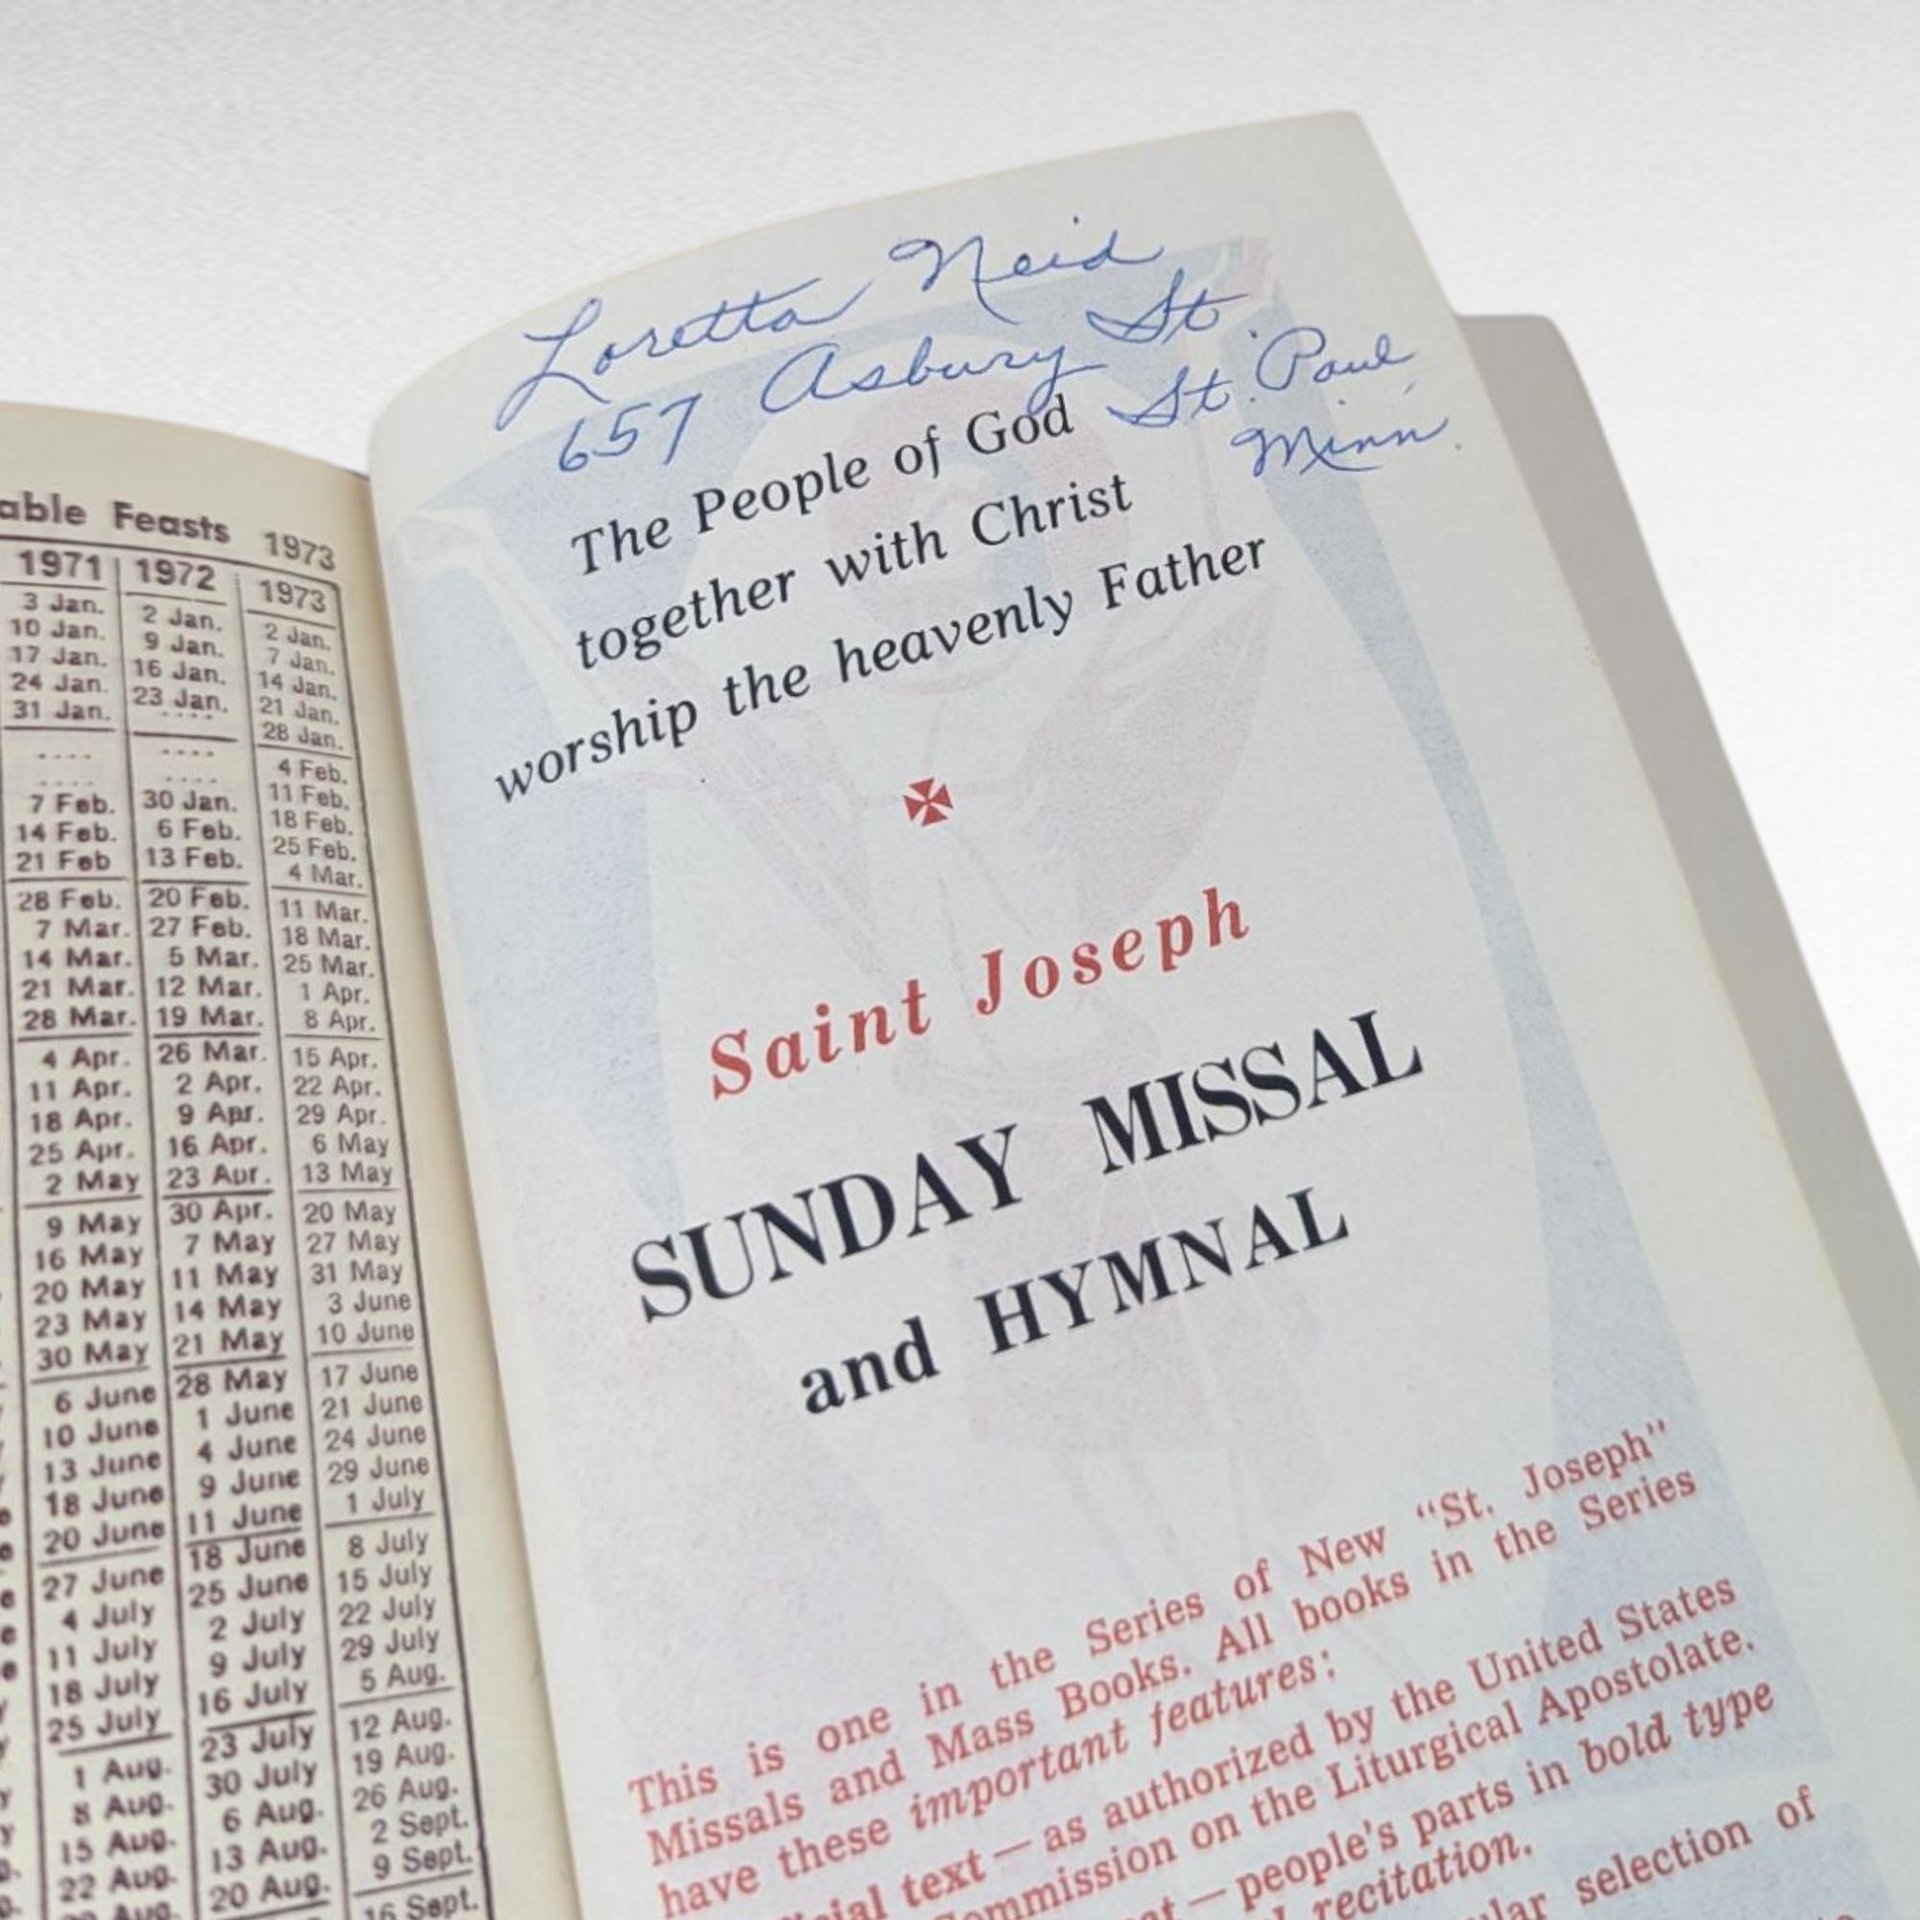 able Feasts 1973
1971 1972 1973
3 Jan. 2 Jan. 2 Jan.
10 Jan. 9 Jan. 7 Jan.
17 Jan. 16 Jan. 14 Jan.
24 Jan. 23 Jan. 21 Jan.
31 Jan. .... 28 Jan.
.... .... 4 Feb.
.... .... 11 Feb.
7 Feb. 30 Jan. 18 Feb.
14 Feb. 6 Feb. 25 Feb.
21 Feb 13 Feb. 4 Mar.
28 Feb. 20 Feb. 11 Mar.
7 Mar. 27 Feb. 18 Mar.
14 Mar. 5 Mar. 25 Mar.
21 Mar. 12 Mar. 1 Apr.
28 Mar. 19 Mar. 8 Apr.
4 Apr. 26 Mar. 15 Apr.
11 Apr. 2 Apr. 22 Apr.
18 Apr. 9 Apr. 29 Apr.
25 Apr. 16 Apr. 6 May
2 May 23 Apr. 13 May
9 May 30 Apr. 20 May
16 May 7 May 27 May
20 May 11 May 31 May
23 May 14 May 3 June
30 May 21 May 10 June
6 June 28 May 17 June
10 June 1 June 21 June
13 June 4 June 24 June
18 June 9 June 29 June
20 June 11 June 1 July
27 June 18 June 8 July
4 July 25 June 15 July
11 July 2 July 22 July
18 July 9 July 29 July
25 July 16 July 5 Aug.
1 Aug. 23 July 12 Aug.
8 Aug. 30 July 19 Aug.
15 Aug. 6 Aug. 26 Aug.
22 Aug. 13 Aug. 2 Sept.
29 Aug. 20 Aug. 9 Sept.
16 Sept.
Loretta Neid
657 Asbury St.
St. Paul,
Minn.
The People of God
together with Christ
worship the heavenly Father
Saint Joseph
SUNDAY MISSAL
and HYMNAL
This is one in the Series of New “St. Joseph”
Missals and Mass Books. All books in the Series
have these important features:
cial text — as authorized by the United States
ommission on the Liturgical Apostolate.
at — people's parts in bold type
recitation.
lar selection of